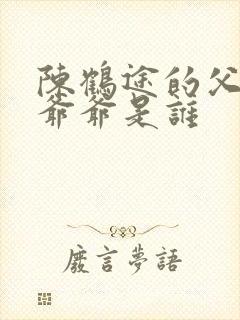 陳鶴途的父
爺爺是誰
廢言夢語